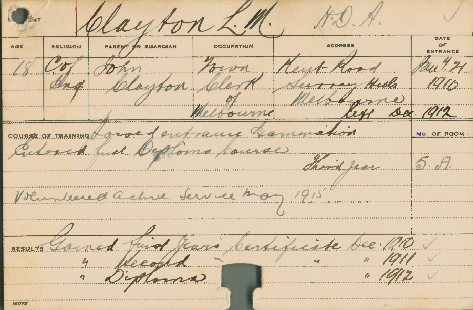 Clayton L. M. H. D. A.
AGE RELIGION PARENT OR GUARDIAN OCCUPATION ADDRESS DATE OF ENTRANCE
18 Col John Town Kent Road
Eng Clayton Clerk Surrey Hills 1910
of Melbourne
Melbourne Left Dec 1912
COURSE OF TRAINING Passed entrance Examination NO. OF ROOM
Entered for Diploma Course
Third Year 5 A.
Volunteered active Service May 1915
RESULTS Gained First Years Certificate Dec 1910
" Second " " 1911
" Diploma " 1912